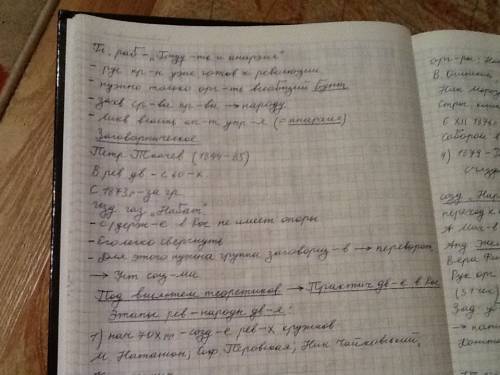 Гл. раб - „Государ-ть и анархия"
- рус кр-н уже готов к революции
- нужно только орг-ть всеобщий бунт
- захв ср-ва пр-ва → народу
- ликв власть, (= анархия)
Заговорщическое
Петр Ткачев (1844-85)
В рев дв - с 60-х
С 1873г - за гр.
изд. газ „Набат"
- с/держ-е в Рос не имеет опоры
- его легко свергнуть
- для этого нужна группа заговорщ-в → переворот
→ Уст соц-ма
Под влиянием теоретиков → Практич дв-е в Рос
Этапы рев-народн дв-я:
1) нач 70х гг - созд-е рев-х кружков
М. Натансон, Соф Перовская, Ник Чайковский,
орг-ры:
В. Осинский
Ник Мороз
6 XII 1876г.
Собором
4) 1879 -
съезд
созд „Нар
переход к
А Мих-в
Анд Же
Вера Фи
Рук орг
(37 чек)
Зад
→